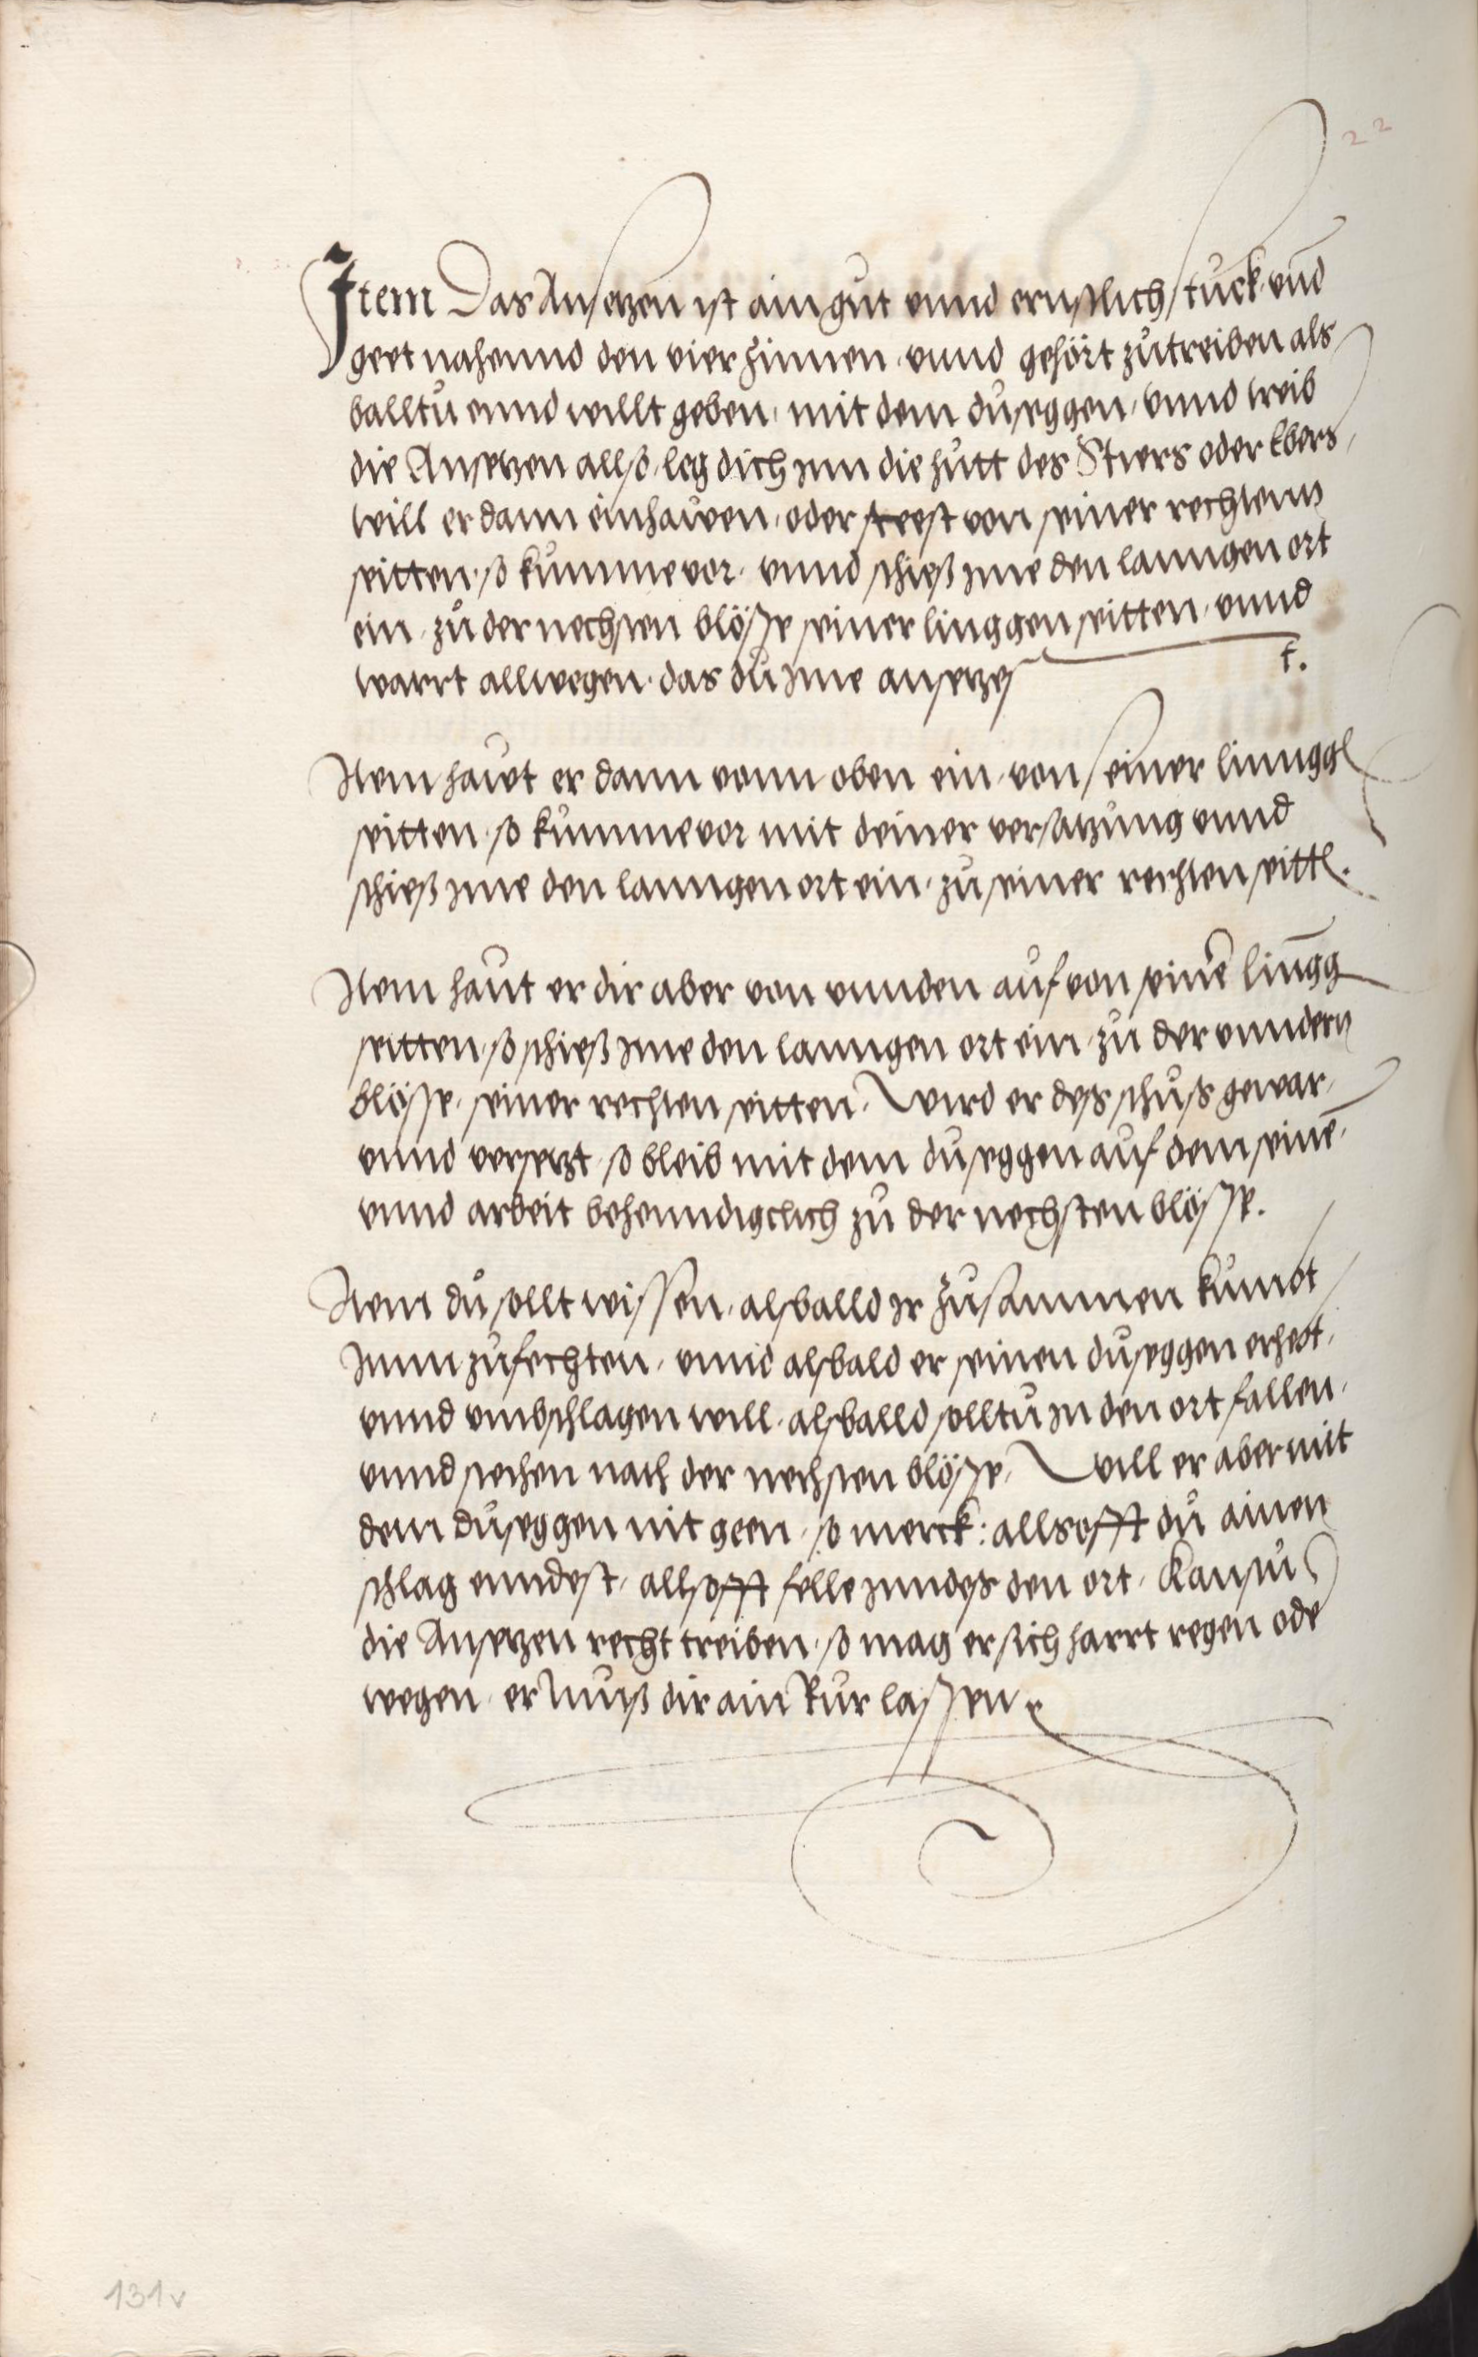 22
Item Das Ansetzen ist ain gut vnnd ernstlich stuck vnd
geet nahennd den vier Zinnen, vnnd gehört zůtreiben als
balltů ennd willt geben, mit dem dusęggen, vnnd treib
die Ansetzen allso, leg dich inn die hůtt des Stiers oder Ebers,
will er dann einhawen, oder stest von seiner rechtenn
seitten, so kumme vor, vnnd schieß ime den lanngen ort
ein, zů der nechsten blösse seiner linggen seitten, vnnd
warrt allwegen, das du ime ansetzes
t.
Item hawt er dann vonn oben ein, von seiner lingg
seitten, so kumme vor mit deiner versatzung vnnd
schieß ime den lanngen ort ein, zu seiner rechten seitt.
Item haut er dir aber von vnnden auf von seinē lingg
seitten, so schieß ime den lanngen ort ein, zu der vnndern
blösse, seiner rechten seitten, Wird er des schuss gewar,
vnnd versetzt, so bleib mit dem duseggen auf dem seinē,
vnnd arbeit behenndigclich zů der nechsten blösse.
Item du sollt wissen, alsballd ir Zusammen kumbt
Inn zufechten, vnnd alsbald er seinen duseggen erhebt,
vnnd vmbschlagen will, alsballd solltu in den ort fallen,
vnnd stechen nach der nechsten blösse, Will er aber mit
dem duseggen nit geen, so merck: alls offt dů ainen
schlag enndest, alls offt felle inndes den ort, Kanstu
die Ansetzen recht treiben, so mag er sich harrt regen ode
wegen, er Muß dir ain Rur lassen
131v